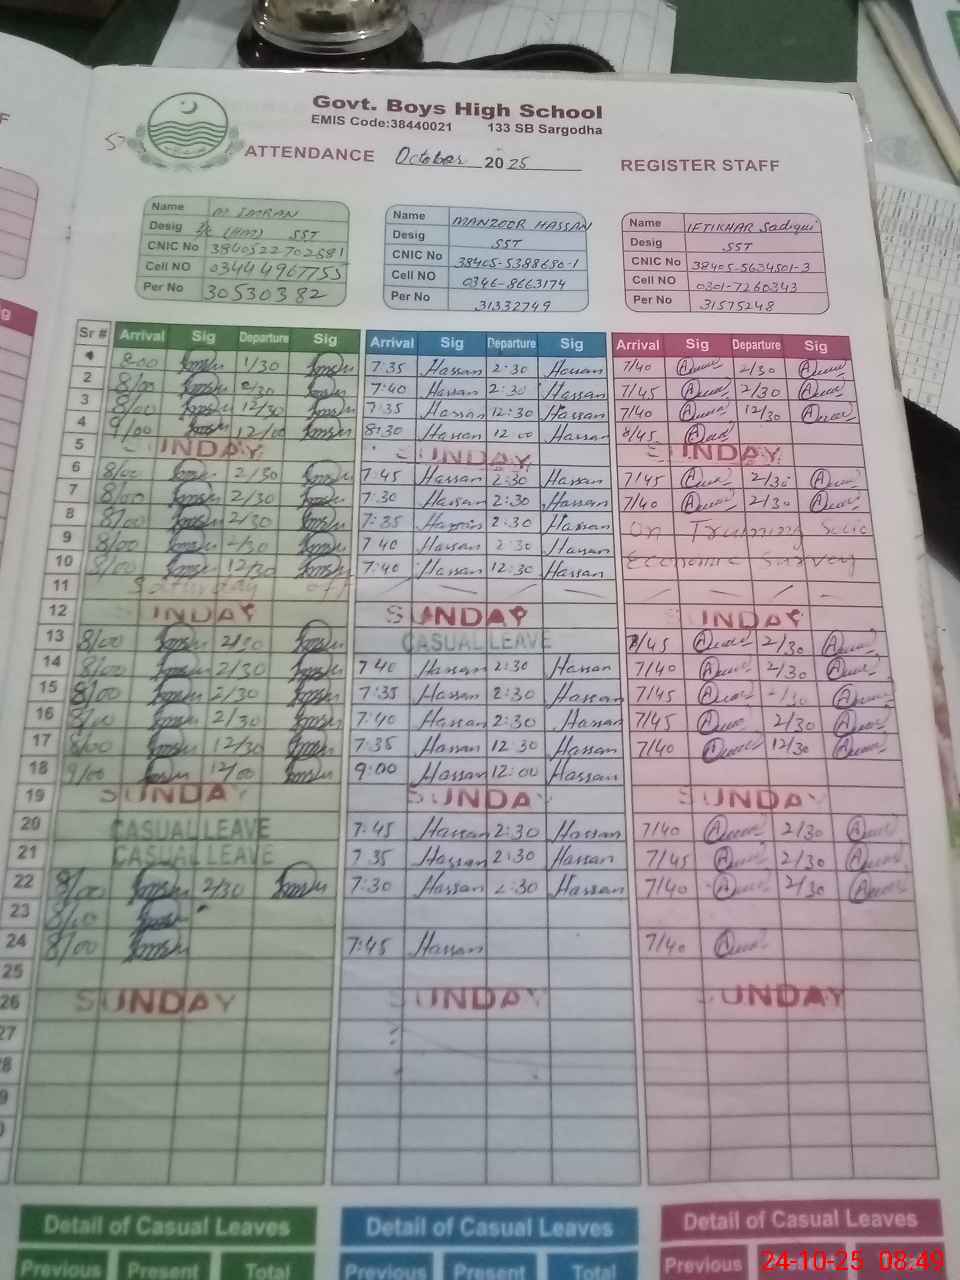 Govt. Boys High School
EMIS Code:38440021 133 SB Sargodha
ATTENDANCE October 2025 REGISTER STAFF
Name M IMRAN
Desig I/C (HM) SST
CNIC No
Cell NO
Per No 30530382
Name MANZOOR HASSAN
Desig SST
CNIC No 38405-5388686-1
Cell NO 0346-8663174
Per No 31332749
Name IFTIKHAR Sadiqui
Desig SST
CNIC No 38405-5634501-3
Cell NO 0301-7260343
Per No 31575248
Sr # Arrival Sig Departure Sig Arrival Sig Departure Sig Arrival Sig Departure Sig
8-00 1/30 7:35 Hassan 2:30 Hassan 7/40 2/30
2 8/00 7:40 Hassan 2:30 Hassan 7/45 2/30
3 8/00 12/30 7:35 Hassan 12:30 Hassan 7/40 12/30
4 9/00 12/00 8:30 Hassan 12:00 Hassan 8/45
5 SUNDAY SUNDAY SUNDAY
6 8/00 2/30 7:45 Hassan 2:30 Hassan 7/45 2/30
7 8/00 2/30 7:30 Hassan 2:30 Hassan 7/40 2/30
8 8/00 2/30 7:35 Hassan 2:30 Hassan On Training Socio
9 8/00 2/30 7:40 Hassan 2:30 Hassan
10 8/00 12/30 7:40 Hassan 12:30 Hassan Economic Survey
11 Saturday off
12 SUNDAY SUNDAY SUNDAY
13 8/00 2/30 CASUAL LEAVE 7/45 2/30
14 8/00 2/30 7:40 Hassan 2:30 Hassan 7/40 2/30
15 8/00 2/30 7:35 Hassan 2:30 Hassan 7/45 2/30
16 8/00 2/30 7:40 Hassan 2:30 Hassan 7/45 2/30
17 8/00 12/30 7:35 Hassan 12:30 Hassan 7/40 12/30
18 9/00 12/00 9:00 Hassan 12:00 Hassan
19 SUNDAY SUNDAY SUNDAY
20 CASUAL LEAVE 7:45 Hassan 2:30 Hassan 7/40 2/30
21 CASUAL LEAVE 7:35 Hassan 2:30 Hassan 7/45 2/30
22 8/00 2/30 7:30 Hassan 2:30 Hassan 7/40 2/30
23 8/00
24 8/00 7:45 Hassan 7/40
25
26 SUNDAY SUNDAY SUNDAY
27
8
9
Detail of Casual Leaves Detail of Casual Leaves Detail of Casual Leaves
Previous Present Total Previous Present Total Previous
24-10-25 08:49